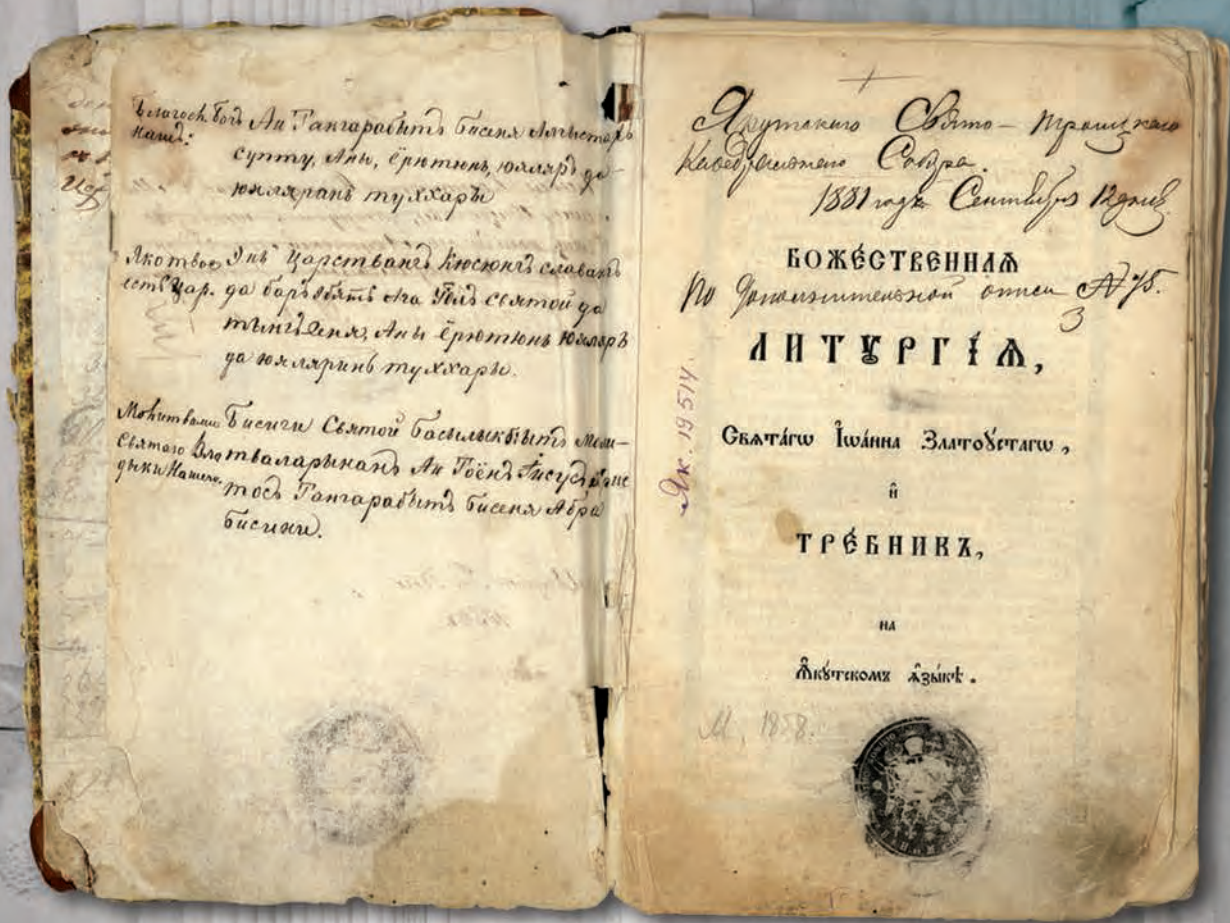 Благосл. Богъ
нашъ:
Аи Тангарабытъ бисеня Алгыстахъ
супту, Аны, ёрютюнь, юяляръ да
юяляранъ туххары
Яко твое
есть Цар.
Энъ Царствангъ Кюсюнгъ славангъ
да баръ Ага Уолъ святой да
Тынгъ Эеня, Аны ёрютюнь Юяляръ
да юяляринь туххары.
Молитвами
святаго Вла
дыки Нашего.
Бисиги Святой Басылыкбытъ Моли-
тваларынанъ Аи Тоёнъ Іисусъ Хрис
тосъ Тангарабытъ бисеня Абра
бисиги.
Якутскаго Свято-Троицкаго
Каѳедральнаго Собора.
1881 года Сентября 12 дня
БОЖЕ́СТВЕННАѦ
По дополнительной описи № 75.
3
ЛИТꙊРГІ́Ѧ,
Свѧта́гѡ І҆ѡа́нна Златоꙋ́стагѡ,
и҆
ТРЕ́БНИКЪ,
на
Ꙗ҆кꙋ́тскомъ ѧ҆зы́кѣ.
Як. 19514
М, 1858.